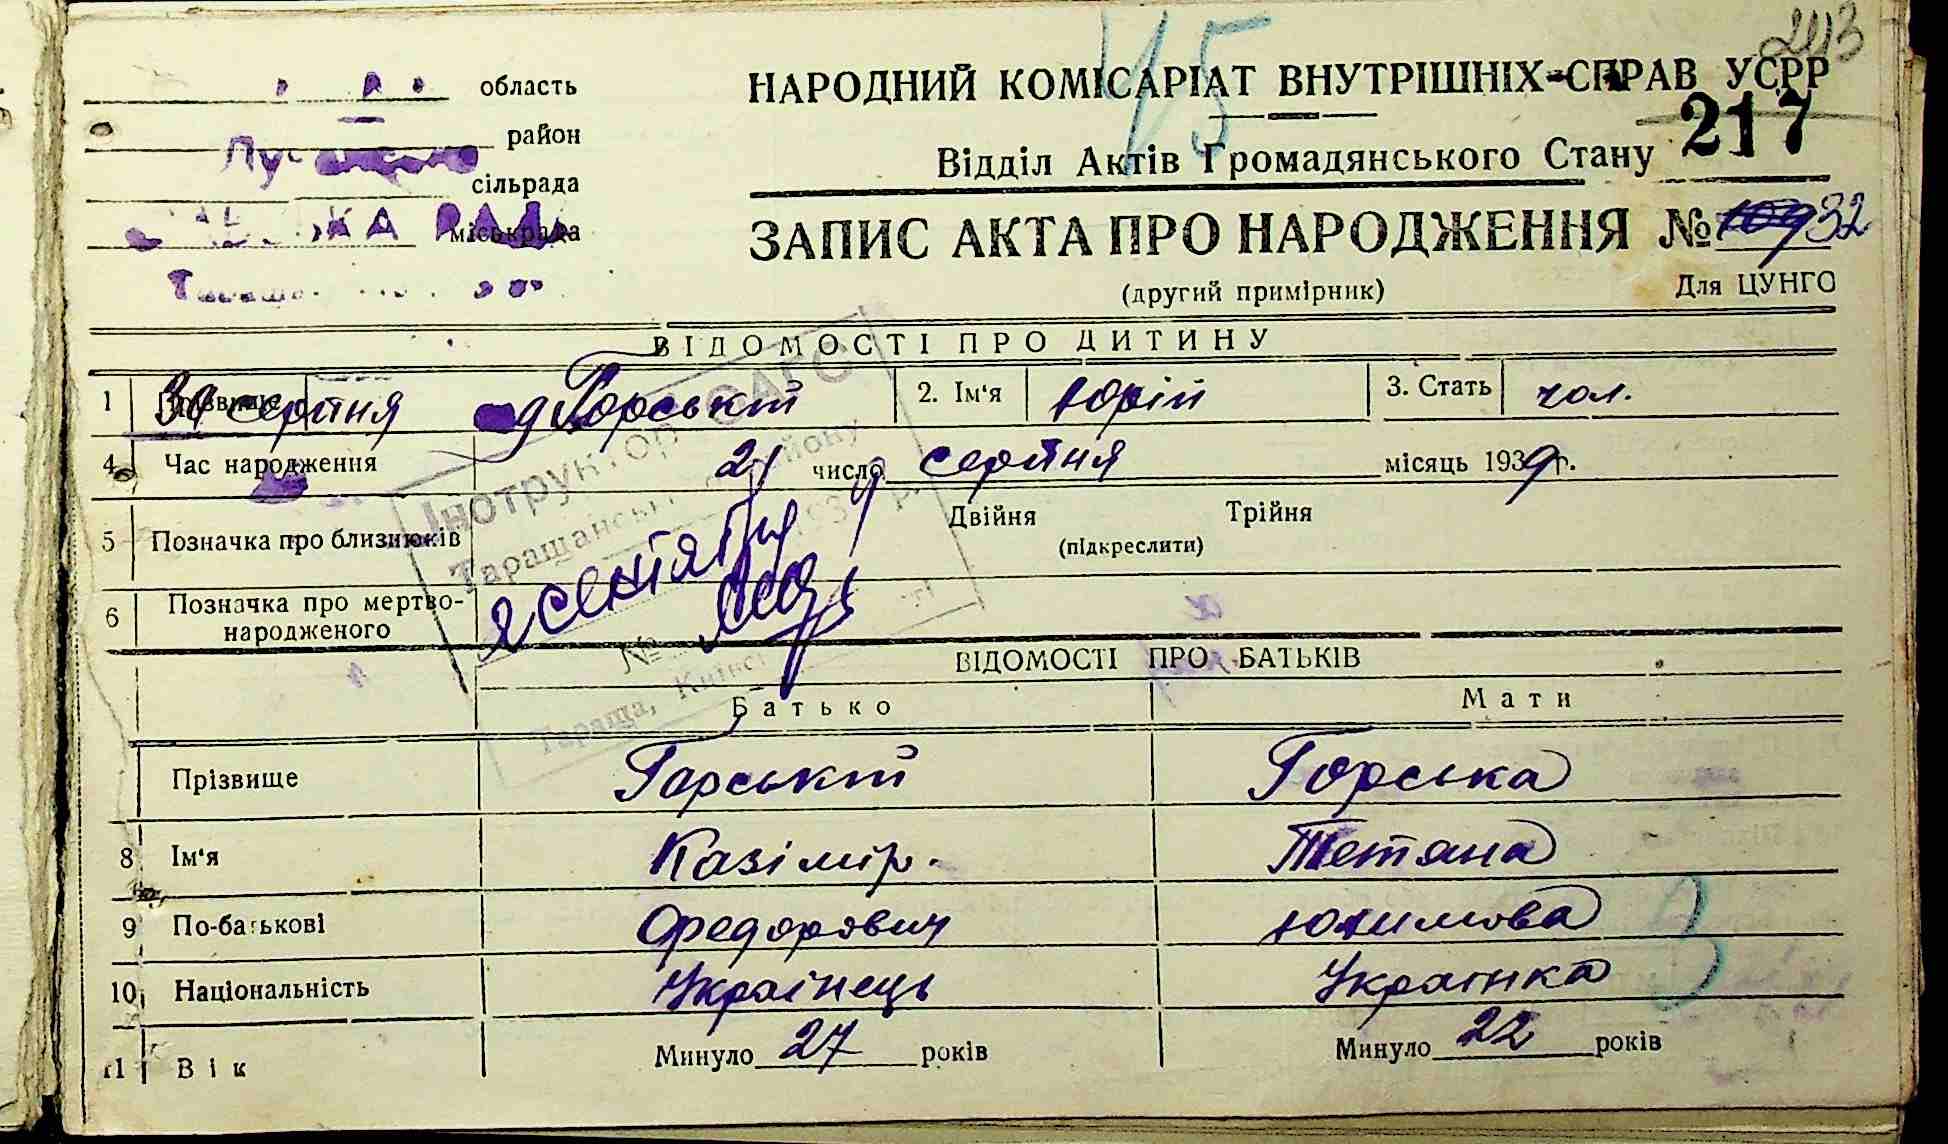 область
район
сільрада
міськрада
НАРОДНИЙ КОМІСАРІАТ ВНУТРІШНІХ СПРАВ УСРР
15
213
217
Відділ Актів Громадянського Стану
ЗАПИС АКТА ПРО НАРОДЖЕННЯ № 32
(другий примірник) Для ЦУНГО
ВІДОМОСТІ ПРО ДИТИНУ
1 Прізвище Горський 2. Ім'я Юрій 3. Стать чол.
30 серпня
4 Час народження 21 число серпня місяць 1939 г.
5 Позначка про близнюків Двійня Трійня
(підкреслити)
Інструктор ОАГС
Таращанськ району
193 р.
№
Тараща, Київс
сентября
6 Позначка про мертво-
народженого
ВІДОМОСТІ ПРО БАТЬКІВ
Батько Мати
Прізвище Горський Горська
8 Ім'я Казімір. Тетяна
9 По-батькові Федорович Юхимова
10 Національність Українець Українка
11 Вік Минуло 27 років Минуло 22 років